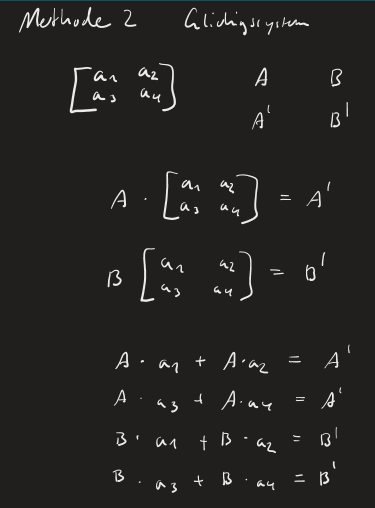 Methode 2 Glichigssystem
[a1 a2 A B
a3 a4] A' B'
A · [a1 a2
a3 a4] = A'
B [a1 a2
a3 a4] = B'
A · a1 + A · a2 = A'
A · a3 + A · a4 = A'
B · a1 + B · a2 = B'
B · a3 + B · a4 = B'